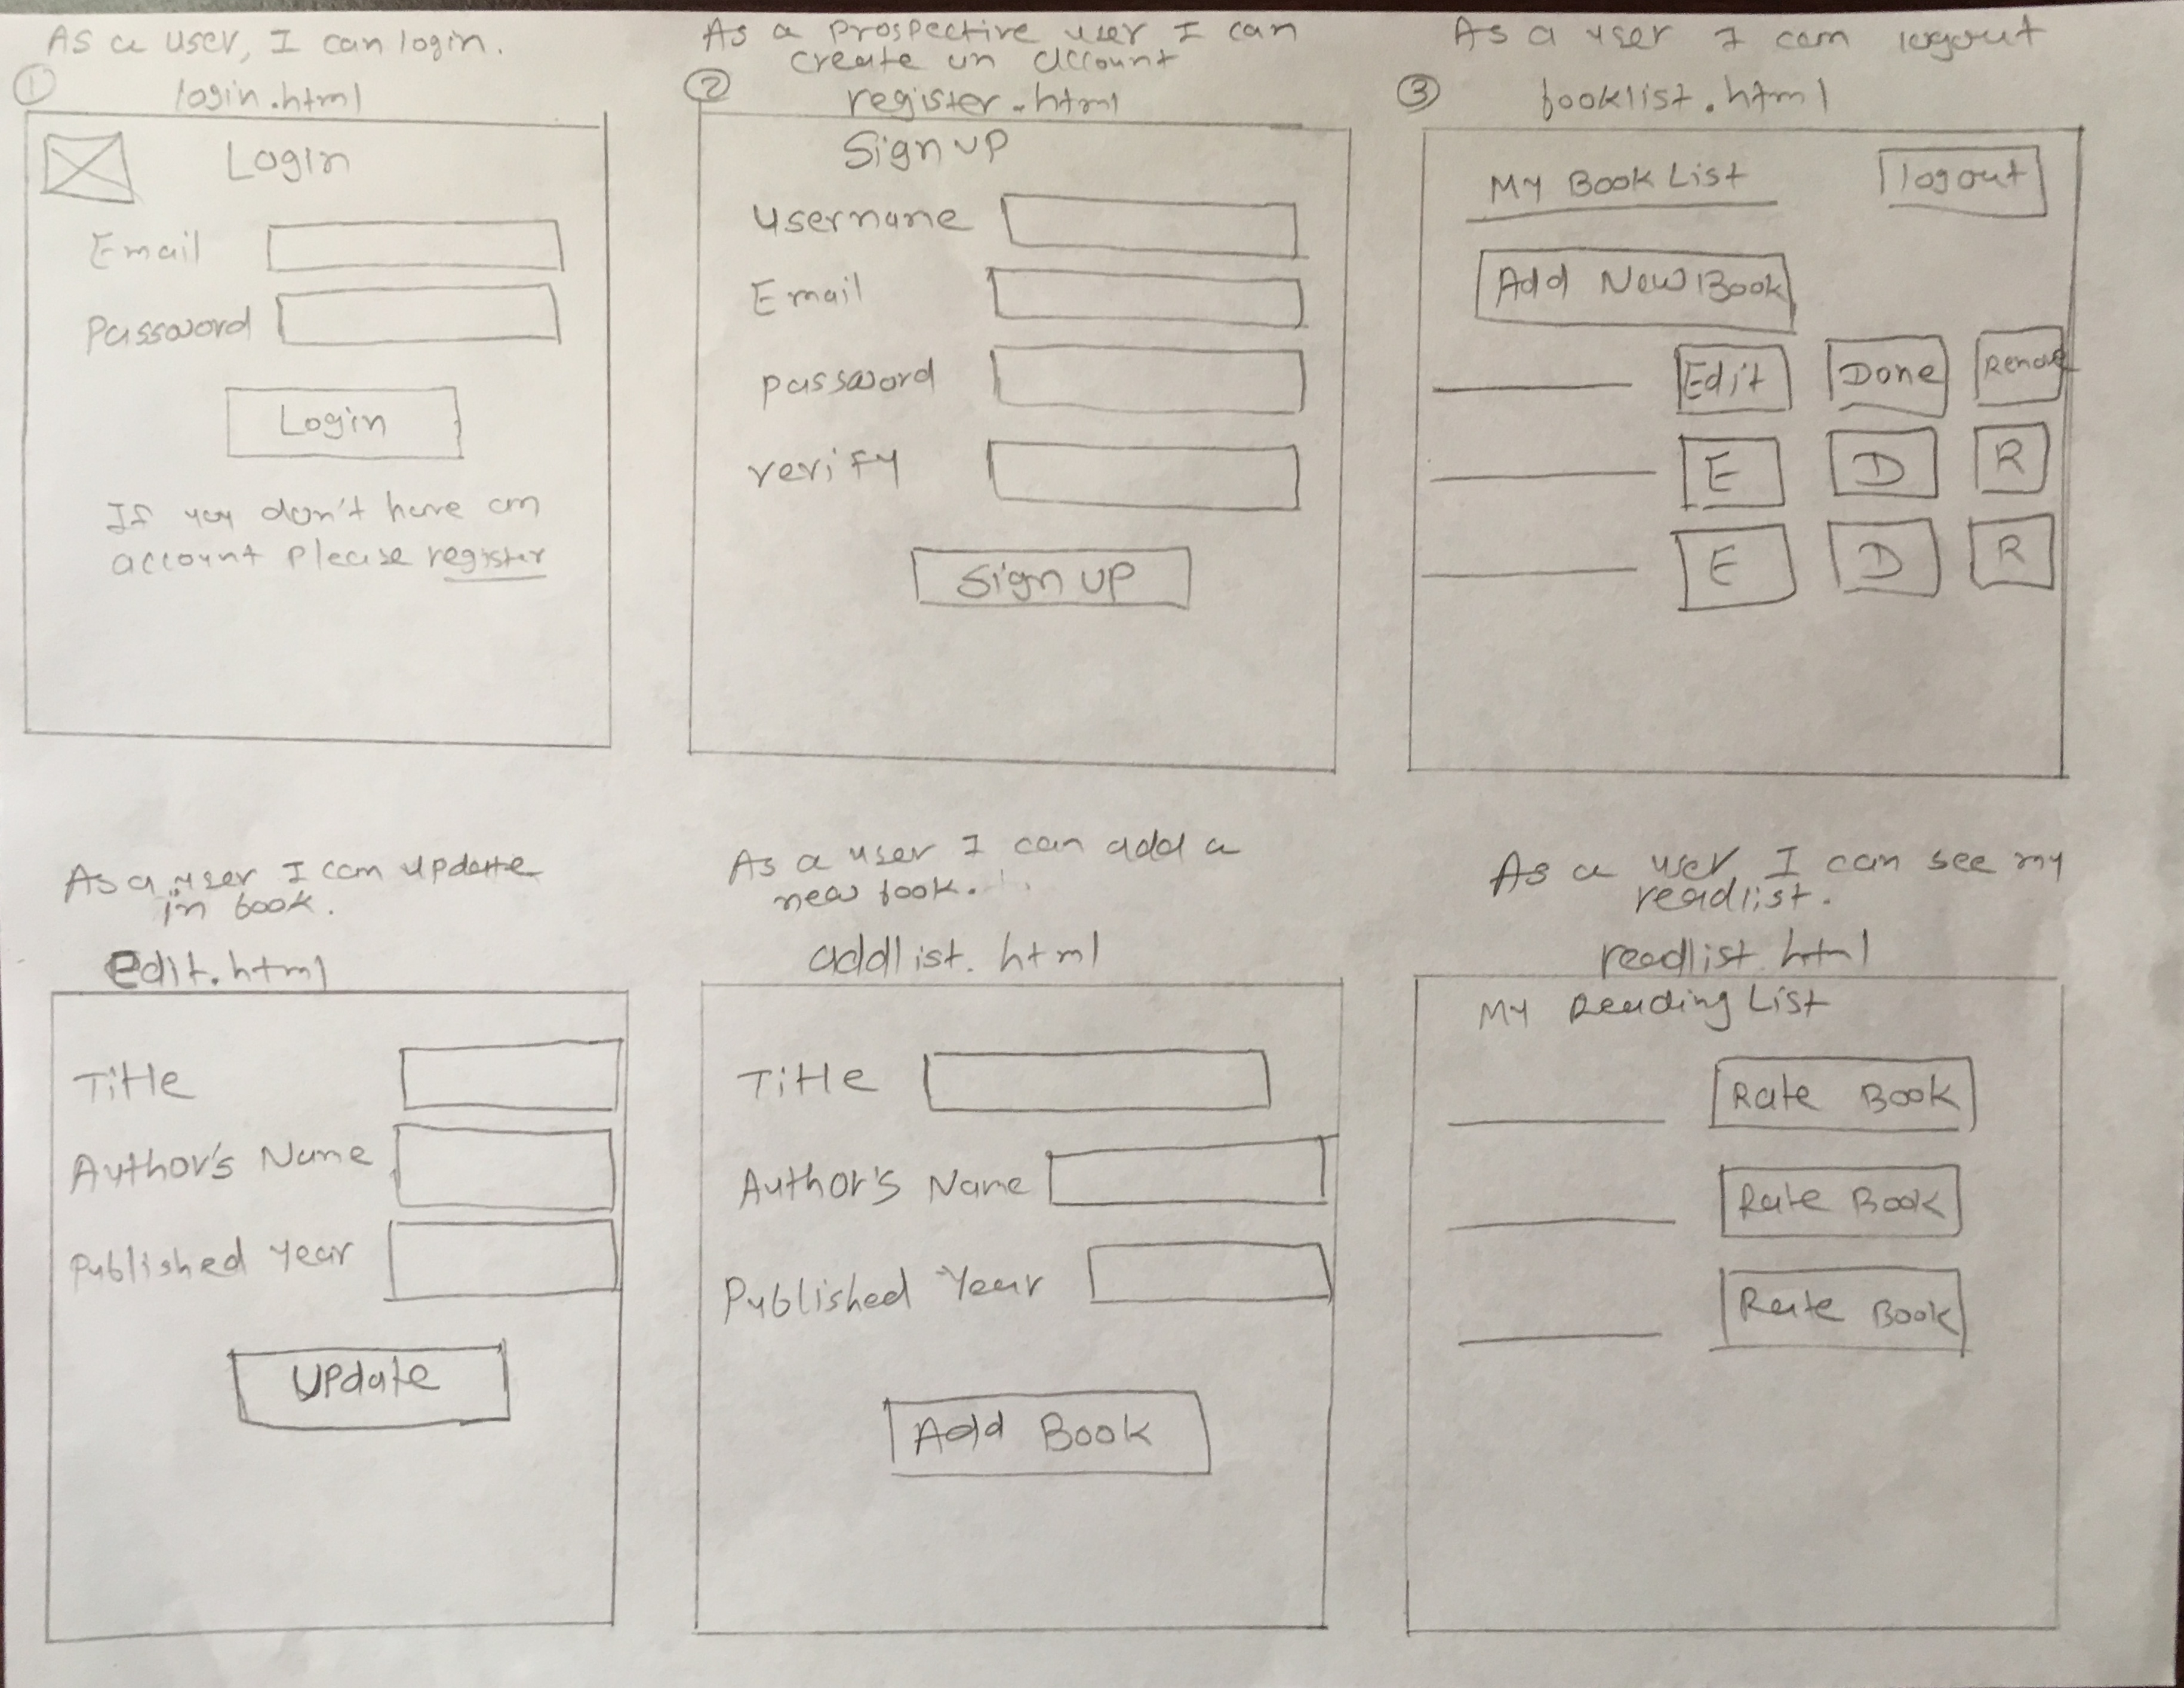 As a user, I can login.
① login.html
Login
Email
Password
Login
If you don't have an
account please register
As a prospective user I can
create an account
② register.html
Sign up
username
Email
password
verify
Sign up
As a user I can logout
③ booklist.html
My Book List
logout
Add New Book
Edit Done Remove
E D R
E D R
As a user I can update
in book.
Edit.html
Title
Author's Name
Published Year
Update
As a user I can add a
new book.
addlist.html
Title
Author's Name
Published Year
Add Book
As a user I can see my
readlist.
readlist.html
My Reading List
Rate Book
Rate Book
Rate Book